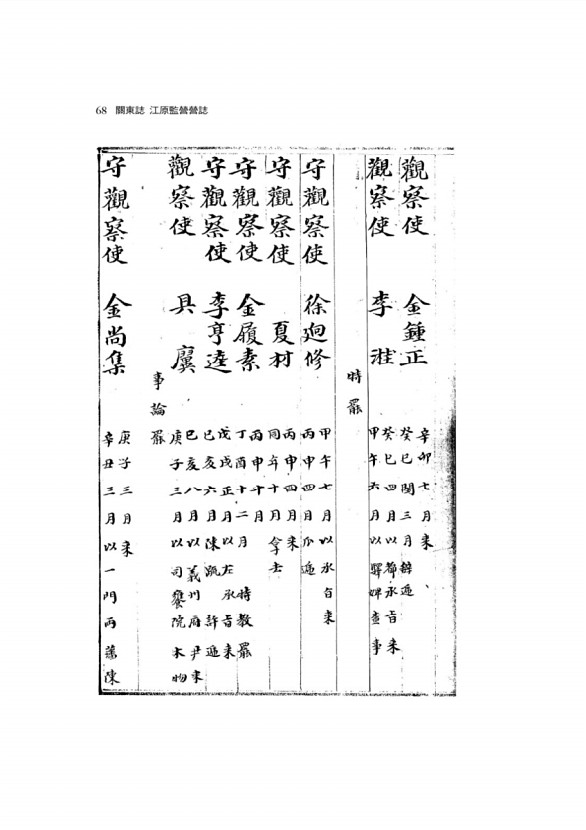 68 關東誌 江原監營營誌
觀察使 金鍾正
辛卯七月來
癸巳閏三月辭遞
觀察使 李溎
癸巳四月以都承旨來
甲午六月以驛婢查事
特罷
守觀察使 徐逈修
甲午七月以承旨來
丙申四月瓜遞
守觀察使 夏材
丙申四月來
同年十月拿去
守觀察使 金履素
丙申十月
丁酉十二月 特教罷
守觀察使 李亨逵
戊戌正月以左承旨來
己亥六月陳疏 許遞
觀察使 具廙
己亥八月以義州府尹來
庚子三月以司饔院木物
事論罷
守觀察使 金尚集
庚子三月來
辛丑三月以一門両藩陳